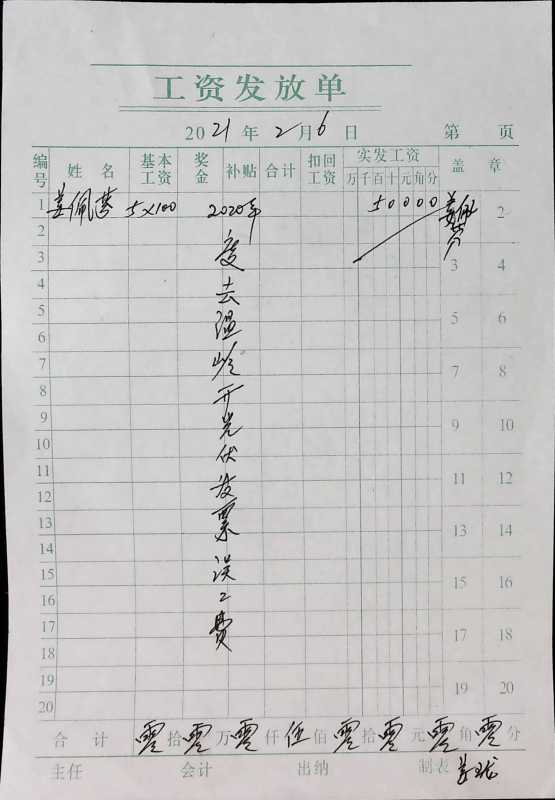 工资发放单
2021年2月6日 第 页
编号 姓名 基本工资 奖金 补贴 合计 扣回工资 实发工资 盖章
万千百十元角分
1 姜佩芬 5×100 2020年 50000 姜佩芬 2
2
3 度 3 4
4 去
5 温 5 6
6
7 岭 7 8
8 开
9 光 9 10
10 伏
11 发 11 12
12
13 票 13 14
14
15 误 15 16
16 工
17 费 17 18
18
19 19 20
20
合计 零拾零万零仟伍佰零拾零元零角零分
主任 会计 出纳 制表